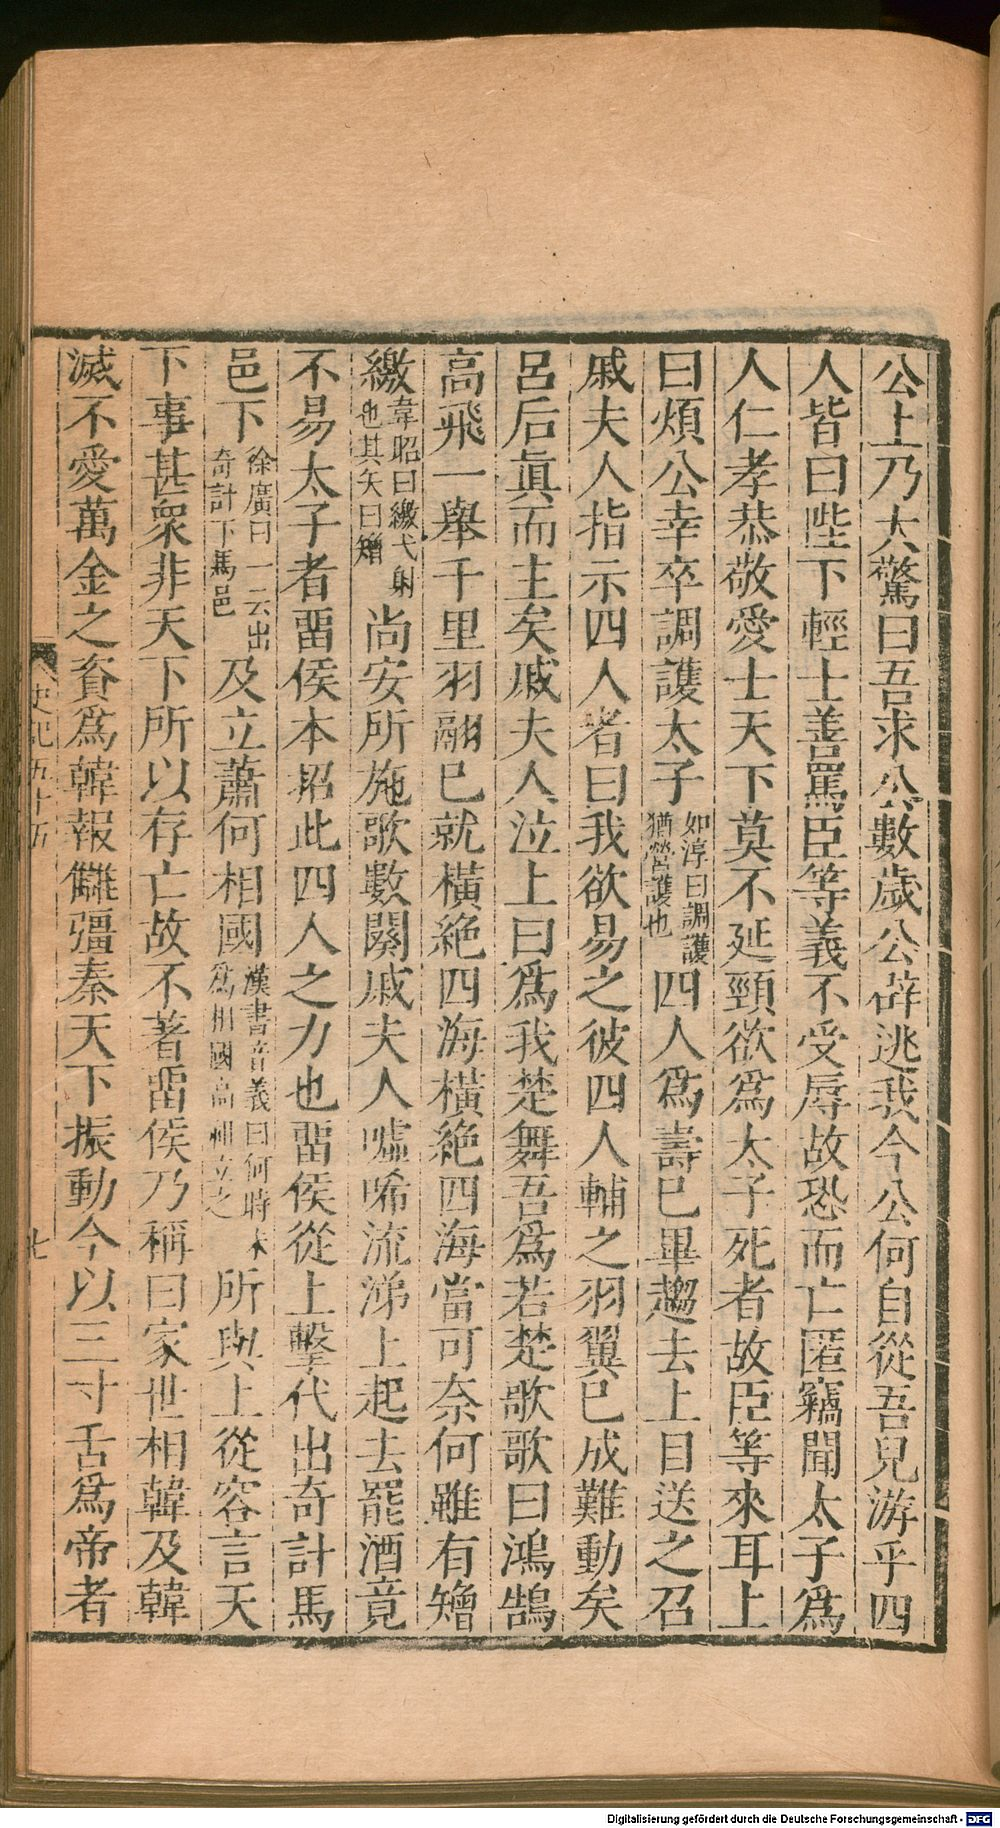 公上乃大驚曰吾求公數歲公辟逃我今公何自從吾兒游乎四
人皆曰陛下輕士善罵臣等義不受辱故恐而亡匿竊聞太子爲
人仁孝恭敬愛士天下莫不延頸欲爲太子死者故臣等來耳上
曰煩公幸卒調護太子如淳曰調護猶營護也四人爲壽已畢趨去上目送之召
戚夫人指示四人者曰我欲易之彼四人輔之羽翼已成難動矣
呂后眞而主矣戚夫人泣上曰爲我楚舞吾爲若楚歌歌曰鴻鵠
高飛一舉千里羽翮已就橫絕四海橫絕四海當可奈何雖有矰
繳韋昭曰繳弋射也其矢曰矰尚安所施歌數闋戚夫人噓唏流涕上起去罷酒竟
不易太子者畱侯本招此四人之力也畱侯從上擊代出奇計馬
邑下徐廣曰一云出奇計下馬邑及立蕭何相國漢書音義曰何時未爲相國高祖立之所與上從容言天
下事甚衆非天下所以存亡故不著畱侯乃稱曰家世相韓及韓
滅不愛萬金之資爲韓報讎彊秦天下振動今以三寸舌爲帝者
史記五十五
七
Digitalisierung gefördert durch die Deutsche Forschungsgemeinschaft - DFG